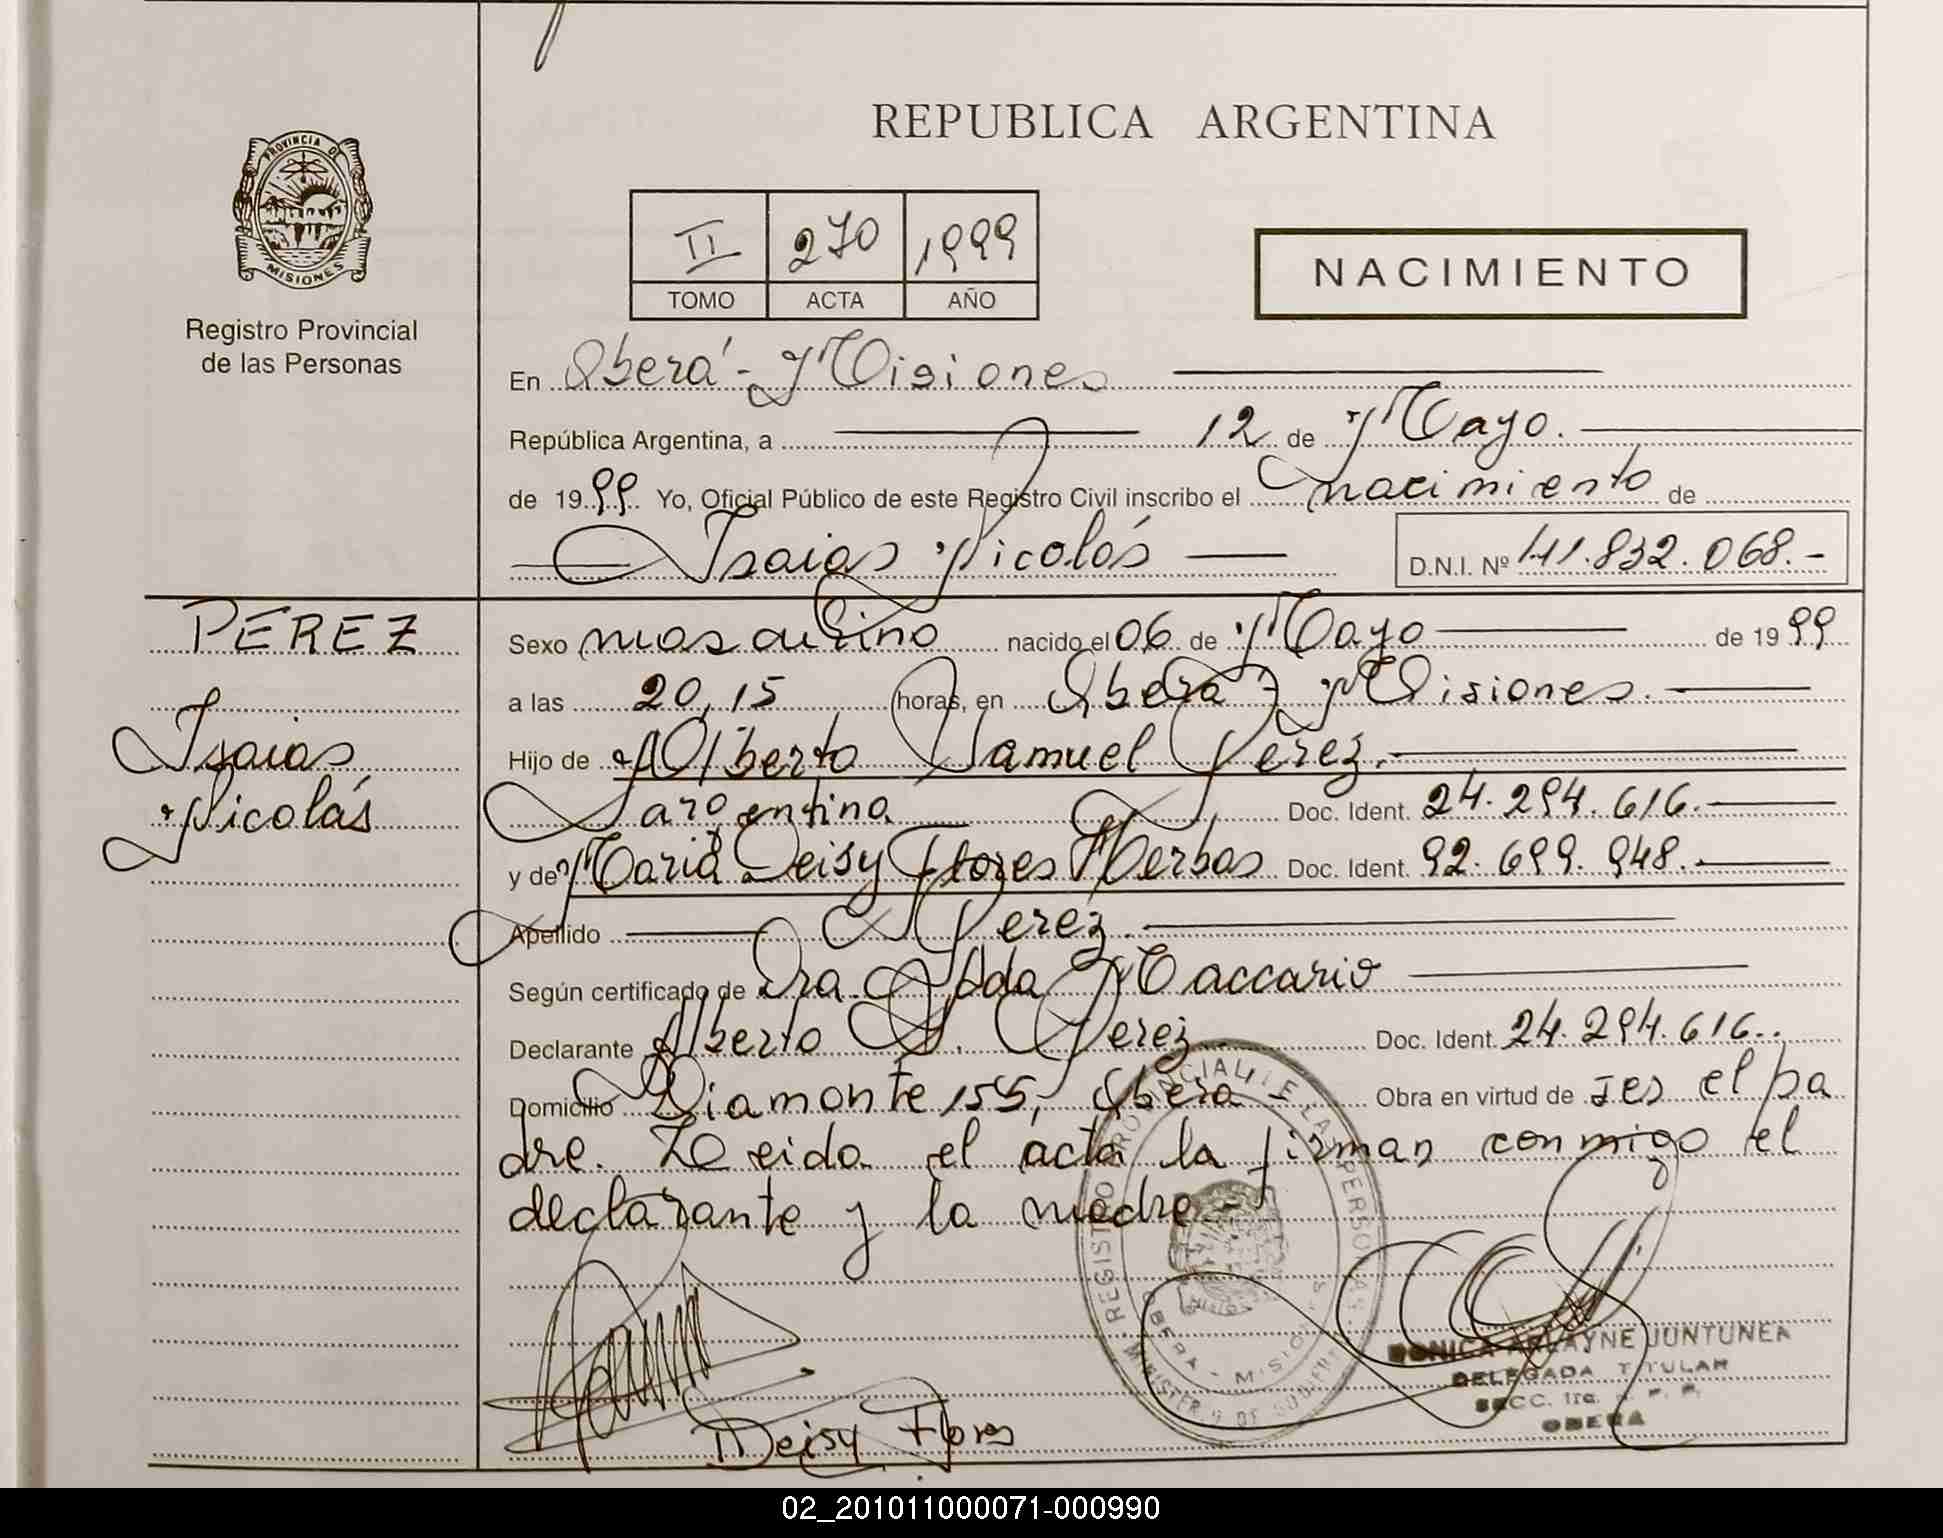 PROVINCIA DE
MISIONES
Registro Provincial
de las Personas
REPUBLICA ARGENTINA
II 270 1999
TOMO ACTA AÑO
NACIMIENTO
En Oberá - Misiones
República Argentina, a 12 de Mayo.
de 1999 Yo, Oficial Público de este Registro Civil inscribo el nacimiento de
Isaias Nicolás D.N.I. Nº 41.832.068.-
PEREZ
Isaias
Nicolás
Sexo masculino nacido el 06 de Mayo de 1999
a las 20,15 horas, en Oberá - Misiones.
Hijo de Alberto Samuel Perez.
argentino Doc. Ident. 24.294.616.
y de Maria Deisy Flores Herbas Doc. Ident. 92.699.948.
Apellido Perez.
Según certificado de Dra. Ada Maccario
Declarante Alberto S. Perez Doc. Ident. 24.294.616..
Domicilio Diamante 155, Oberá - Obra en virtud de ser el pa
dre. Leida el acta la firman conmigo el
declarante y la madre.-
REGISTRO PROVINCIAL DE LAS PERSONAS
OBERA - MISIONES
Deisy Flores
ARLAYNE JUNTUNEN
DELEGADA TITULAR
SECC. 1ra. R. P. P.
OBERA
02_201011000071-000990